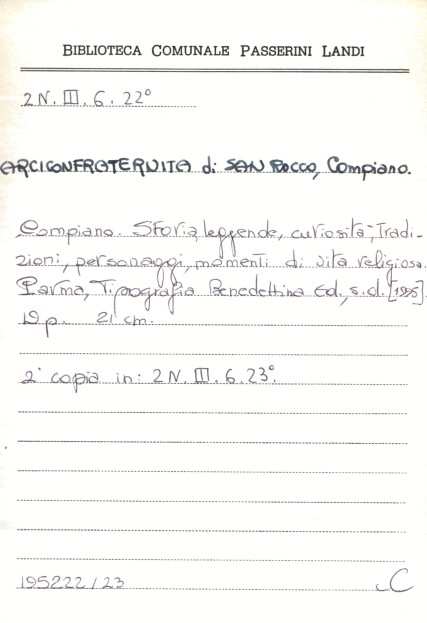 BIBLIOTECA COMUNALE PASSERINI LANDI
2 N. III. 6. 22°
ARCICONFRATERNITA di SAN ROCCO, Compiano.
Compiano. Storia, leggende, curiosità, Tradi-
zioni, personaggi, momenti di vita religiosa.
Parma, Tipografia Benedettina Ed., s.d.
19 p. 21 cm.
2ª copia in: 2 N. III. 6. 23°.
195222 / 23
C